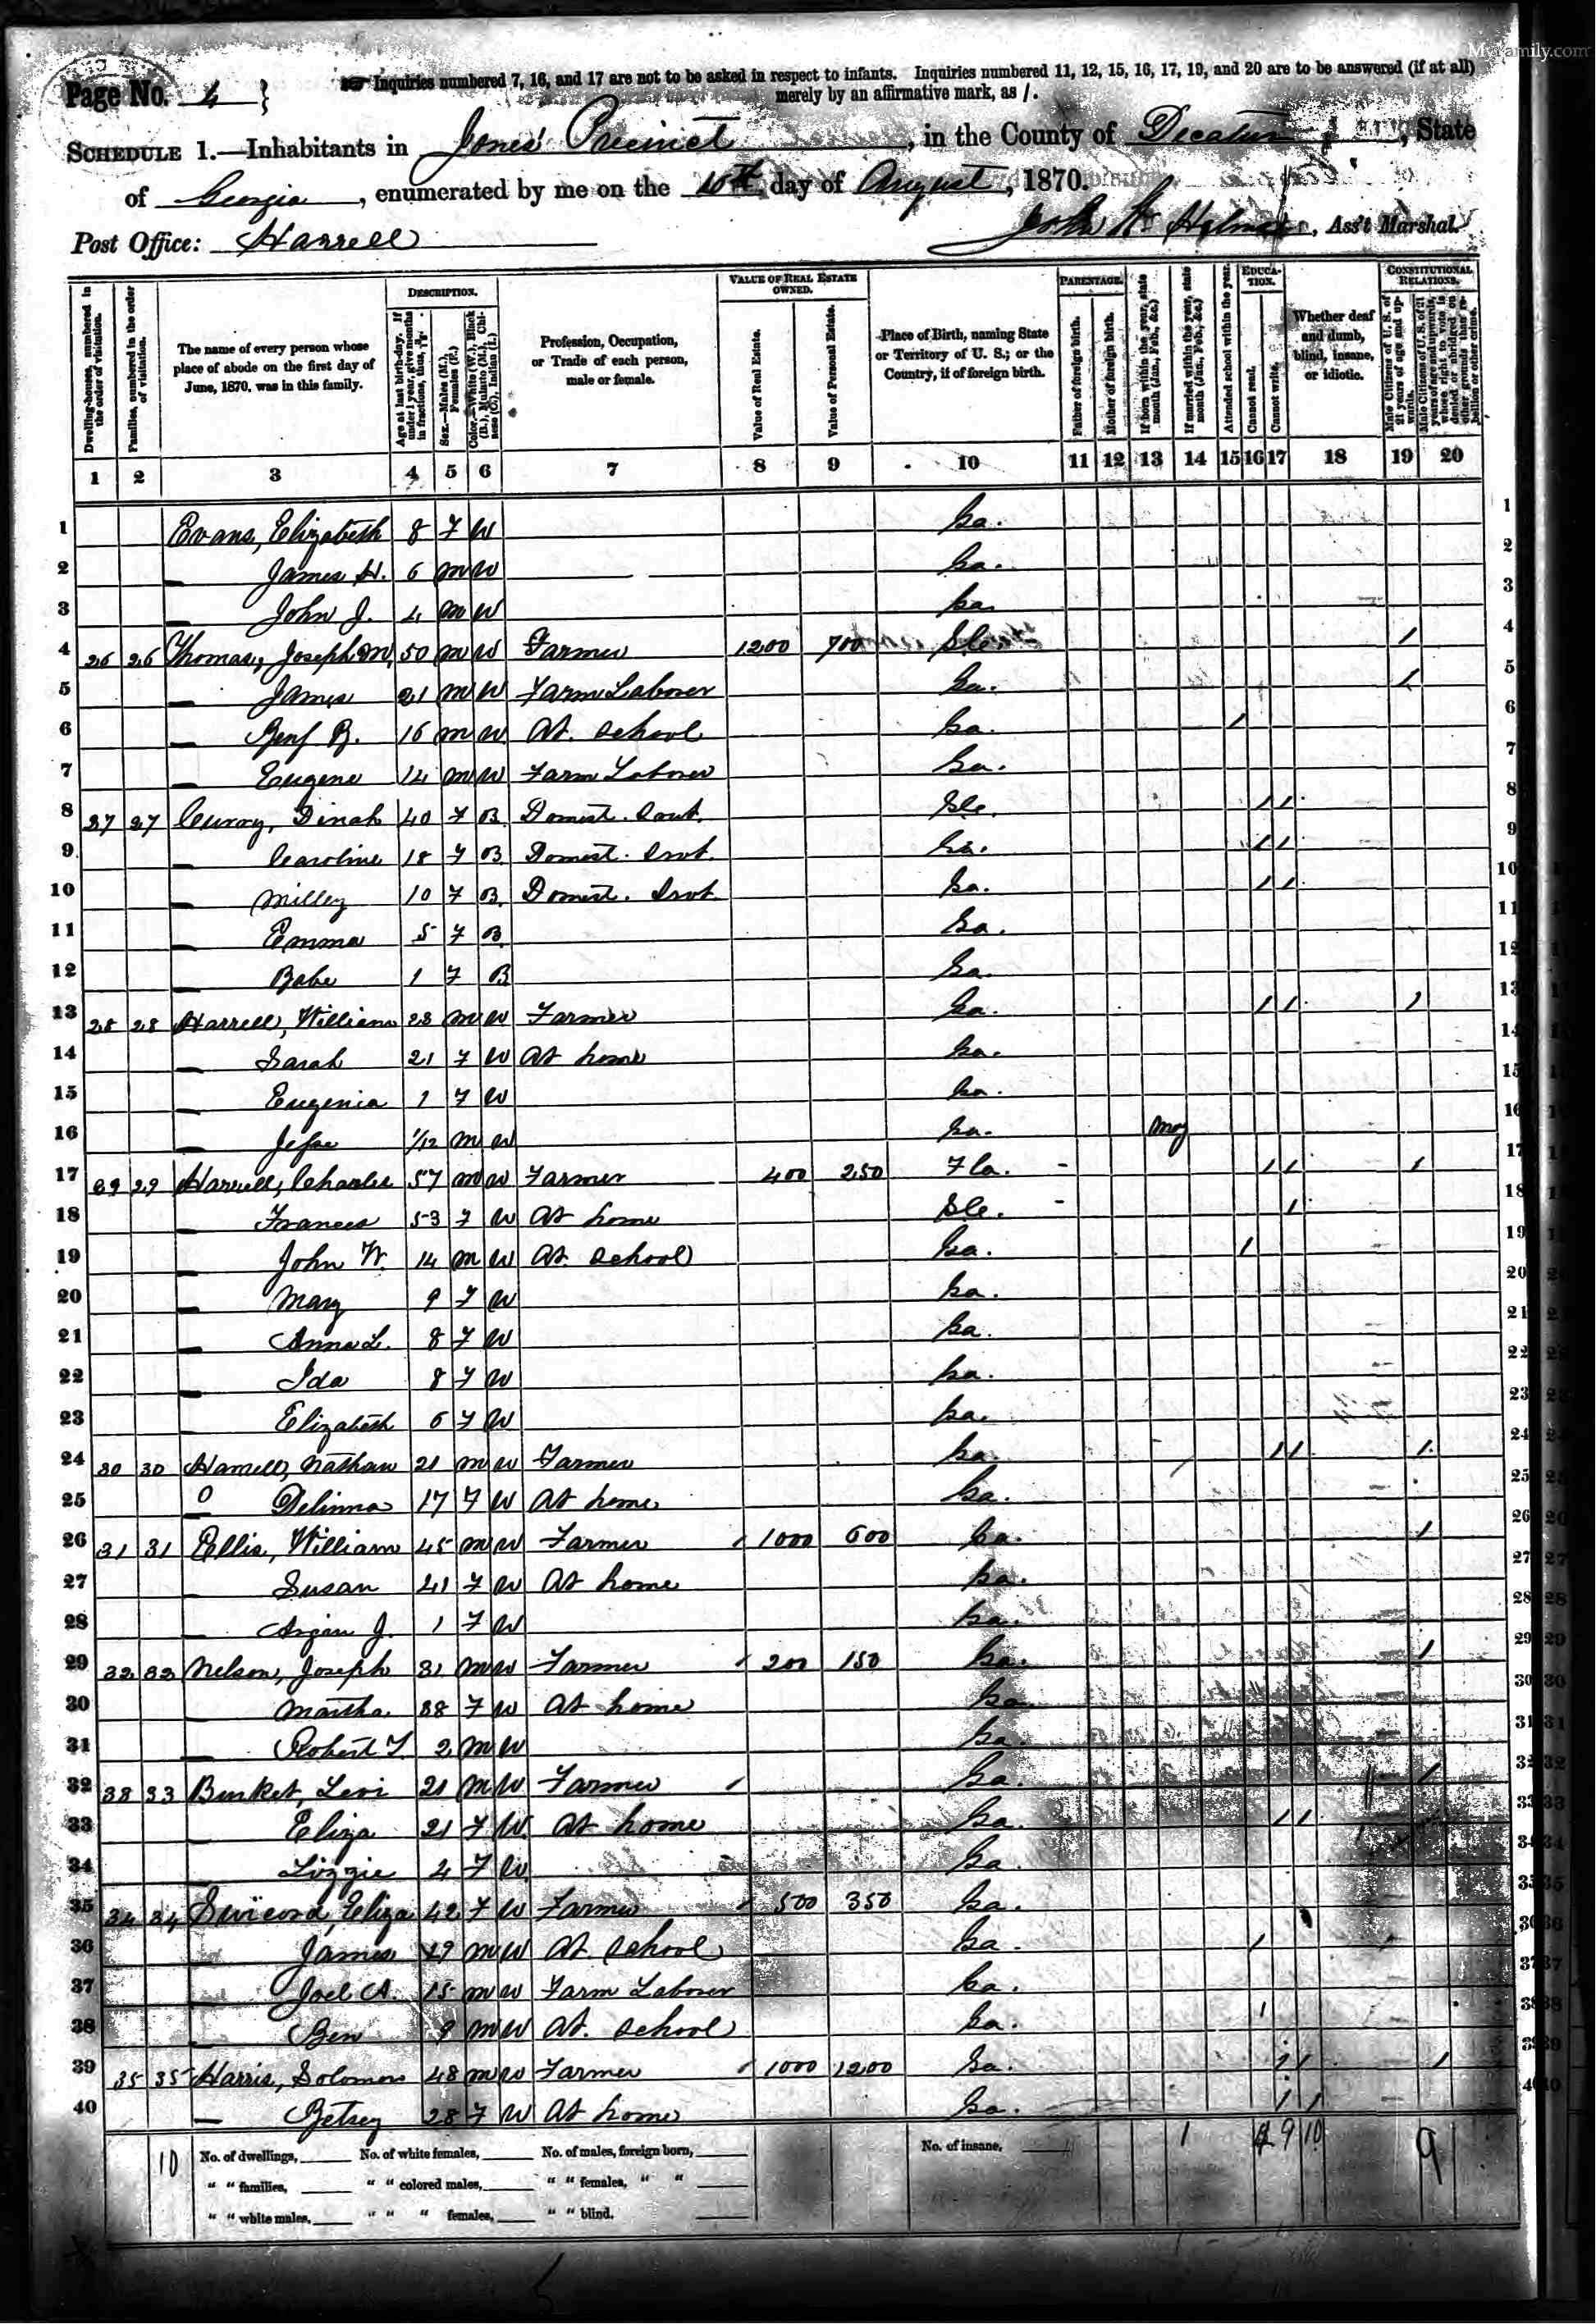 MyFamily.com
Page No. 4 } Inquiries numbered 7, 16, and 17 are not to be asked in respect to infants. Inquiries numbered 11, 12, 15, 16, 17, 19, and 20 are to be answered (if at all)
merely by an affirmative mark, as /.
SCHEDULE 1.—Inhabitants in Jones' Precinct, in the County of Decatur, State
of Georgia, enumerated by me on the 10th day of August, 1870.
Post Office: Harrell John, Ass't Marshal.
Dwelling-houses, numbered in the order of visitation.
Families, numbered in the order of visitation.
The name of every person whose place of abode on the first day of June, 1870, was in this family.
DESCRIPTION.
Age at last birth-day. If under 1 year, give months in fractions, thus,
Sex.—Males (M.), Females (F.)
Color.—White (W.), Black (B.), Mulatto (M.), Chinese (C.), Indian (I.)
Profession, Occupation, or Trade of each person, male or female.
VALUE OF REAL ESTATE OWNED.
Value of Real Estate.
Value of Personal Estate.
Place of Birth, naming State or Territory of U. S.; or the Country, if of foreign birth.
PARENTAGE.
Father of foreign birth.
Mother of foreign birth.
If born within the year, state month (Jan., Feb., &c.)
If married within the year, state month (Jan., Feb., &c.)
Attended school within the year.
EDUCATION.
Cannot read.
Cannot write.
Whether deaf and dumb, blind, insane, or idiotic.
CONSTITUTIONAL RELATIONS.
Male Citizens of U. S. of 21 years of age and upwards.
Male Citizens of U. S. of 21 years of age and upwards, whose right to vote is denied or abridged on other grounds than rebellion or other crime.
1 2 3 4 5 6 7 8 9 10 11 12 13 14 15 16 17 18 19 20
1 Evans, Elizabeth 8 F W Ga. 1
2 — James H. 6 M W Ga. 2
3 — John J. 4 M W Ga. 3
4 26 26 Thomas, Joseph M. 50 M W Farmer 1200 700 S.C. / 4
5 — James 21 M W Farm Laborer Ga. / 5
6 — Benj B. 16 M W At school Ga. / 6
7 — Eugene 14 M W Farm Laborer Ga. 7
8 27 27 Curry, Dinah 40 F B Domest. Svt. S.C. / / 8
9 — Caroline 18 F B Domest. Srvt. Ga. / / 9
10 — Milley 10 F B Domest. Srvt. Ga. / / 10
11 — Emma 5 F B Ga. 11
12 — Babe 1 F B Ga. 12
13 28 28 Harrell, William 23 M W Farmer Ga. / / / 13
14 — Sarah 21 F W At home Ga. 14
15 — Eugenia 1 F W Ga. 15
16 — Jesse 1/12 M W Ga. May 16
17 29 29 Harrell, Charles 57 M W Farmer 400 250 Fla. / / / 17
18 — Frances 53 F W At home S.C. / 18
19 — John W. 14 M W At school Ga. / 19
20 — Mary 9 F W Ga. 20
21 — Anna L. 8 F W Ga. 21
22 — Ida 8 F W Ga. 22
23 — Elizabeth 6 F W Ga. 23
24 30 30 Harrell, Nathan 21 M W Farmer Ga. / / / 24
25 — Delinna 17 F W At home Ga. 25
26 31 31 Ellis, William 45 M W Farmer 1000 600 Ga. / 26
27 — Susan 41 F W At home Ga. 27
28 — J. 1 F W Ga. 28
29 32 32 Nelson, Joseph 31 M W Farmer 200 150 Ga. / 29
30 — Martha 38 F W At home Ga. 30
31 — Robert T. 2 M W Ga. 31
32 33 33 Burket, Levi 21 M W Farmer Ga. / 32
33 — Eliza 21 F W At home Ga. / / 33
34 — Lizzie 4 F W Ga. 34
35 34 34 Swicord, Eliza 42 F W Farmer 500 350 Ga. 35
36 — James 19 M W At school Ga. / 36
37 — Joel A. 15 M W Farm Laborer Ga. 37
38 — Ben 9 M W At school Ga. / 38
39 35 35 Harris, Solomon 48 M W Farmer 1000 1200 Ga. / / / 39
40 — Betsey 28 F W At home Ga. / / 40
10 No. of dwellings, No. of white females, No. of males, foreign born, No. of insane, 1 9 10 9
" " families, " " colored males, " " females, " "
" " white males, " " " females, " " blind.